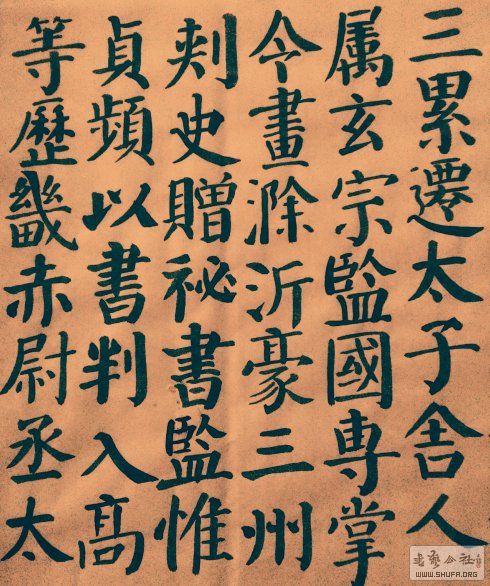 三累遷太子舍人
属玄宗監國專掌
令畫滁沂豪三州
刺史贈祕書監惟
貞頻以書判入高
等歷畿赤尉丞太
書藝公社
WWW.SHUFA.ORG